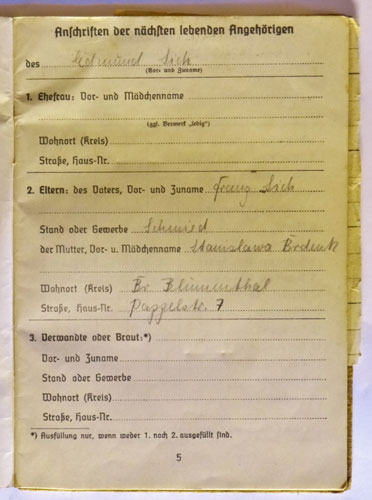 Anschriften der nächsten lebenden Angehörigen
des Edmund Sich
(Vor- und Zuname)
1. Ehefrau: Vor- und Mädchenname
(ggf. Vermerk „ledig“)
Wohnort (Kreis)
Straße, Haus-Nr.
2. Eltern: des Vaters, Vor- und Zuname Franz Sich
Stand oder Gewerbe Schmied
der Mutter, Vor- u. Mädchenname Stanislawa
Wohnort (Kreis) Br. Blumenthal
Straße, Haus-Nr. Pappelstr. 7
3. Verwandte oder Braut:*)
Vor- und Zuname
Stand oder Gewerbe
Wohnort (Kreis)
Straße, Haus-Nr.
*) Ausfüllung nur, wenn weder 1. noch 2. ausgefüllt sind.
5